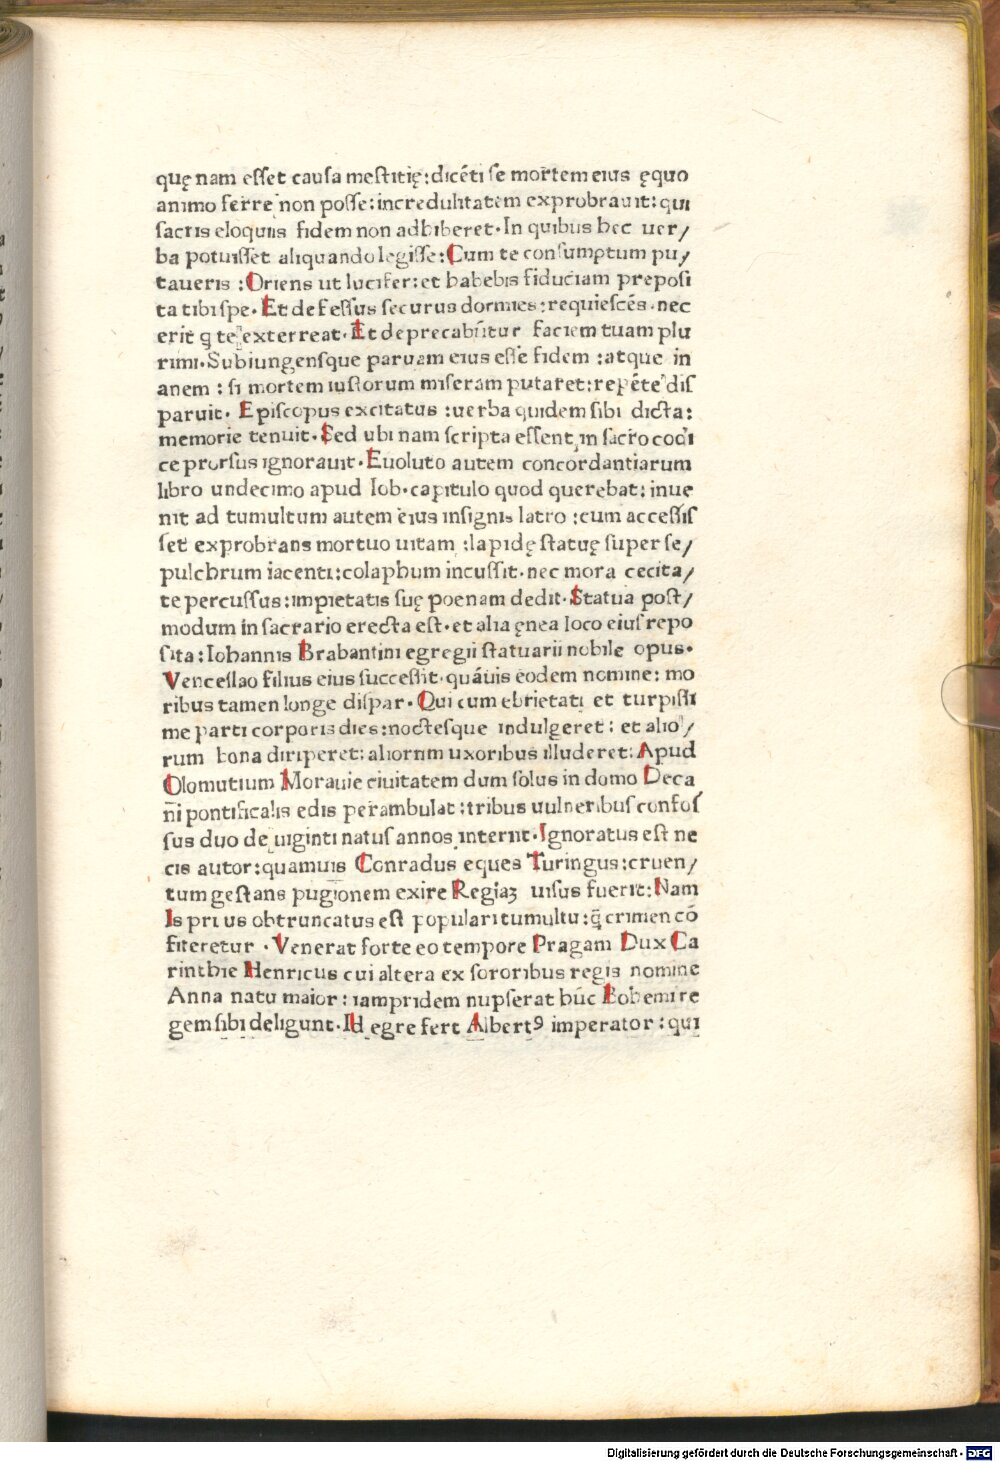 quę nam eſſet cauſa meſtitię:dicēti ſe mortem eius ęquo
animo ferre non poſſe:incredulitatem exprobrauit:qui
ſacris eloquiis fidem non adhiberet·In quibus hec uer/
ba potuiſſet aliquando legiſſe:Cum te conſumptum pu/
taueris :Oriens ut lucifer:et habebis fiduciam prepoſi
ta tibi ſpe·Et defeſſus ſecurus dormies:requieſcēs·nec
erit q te exterreat·Et deprecabūtur faciem tuam plu
rimi·Subiungenſque paruam eius eſſe fidem :atque in
anem : ſi mortem iuſtorum miſeram putaret:repēte diſ
paruit· Epiſcopus excitatus :uerba quidem ſibi dicta:
memorie tenuit·Sed ubi nam ſcripta eſſent in ſacro codi
ce prorſus ignorauit·Euoluto autem concordantiarum
libro undecimo apud Iob·capitulo quod querebat:inue
nit ad tumultum autem eius inſignis latro :cum acceſſiſ
ſet exprobrans mortuo uitam :lapidę ſtatuę ſuper ſe/
pulchrum iacenti:colaphum incuſſit·nec mora cecita/
te percuſſus:impietatis ſuę poenam dedit·Statua poſt/
modum in ſacrario erecta eſt·et alia ęnea loco eiuſ repo
ſita:Iohannis Brabantini egregii ſtatuarii nobile opus·
Venceſlao filius eius ſucceſſit·quāuis eodem nomine: mo
ribus tamen longe diſpar·Qui cum ebrietati et turpiſſi
me parti corporis dies:noctesque indulgeret: et alio/
rum bona diriperet:aliorum uxoribus illuderet:Apud
Olomutium Morauie ciuitatem dum ſolus in domo Deca
ni pontificalis edis perambulat:tribus uulneribuſ confoſ
ſus duo de uiginti natuſ annos interiit·Ignoratus eſt ne
cis autor:quamuis Conradus eques Turingus:cruen/
tum geſtans pugionem exire Regiaꝫ uiſus fuerit:Nam
Is prius obtruncatus eſt populari tumultu:q̄ crimen cō
fiteretur ·Venerat forte eo tempore Pragam Dux Ca
rinthie Henricus cui altera ex ſororibus regis nomine
Anna natu maior:iampridem nupſerat hūc Bohemi re
gem ſibi deligunt·Id egre fert Albertꝰ imperator:qui
Digitalisierung gefördert durch die Deutsche Forschungsgemeinschaft - DFG